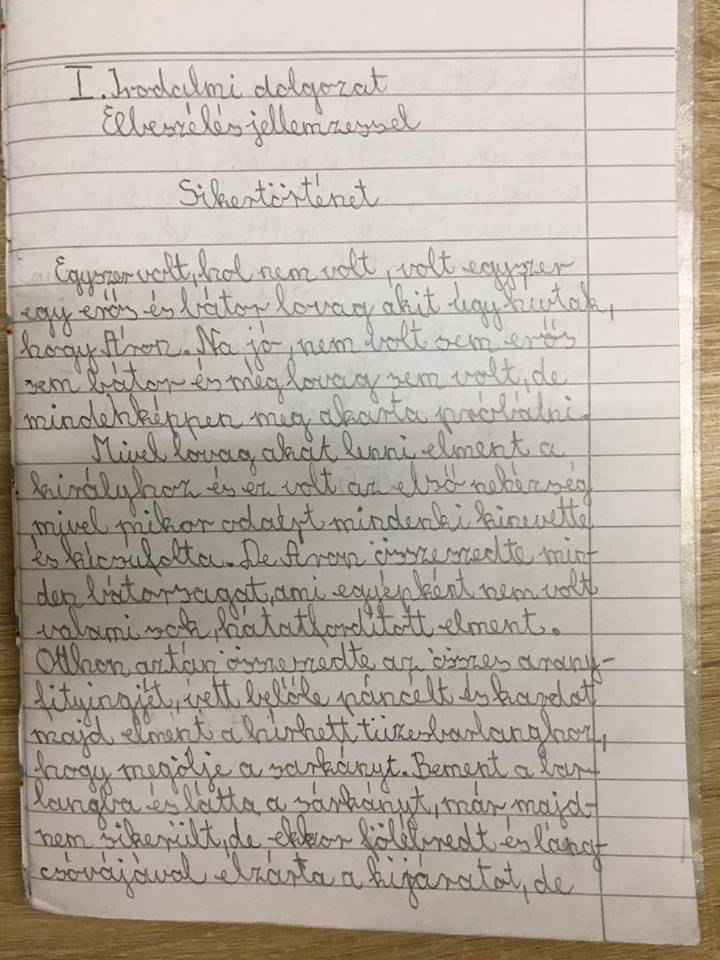 I. Irodalmi dolgozat
Elbeszélés jellemzessel
Sikertörténet
Egyszer volt, hol nem volt, volt egyszer
egy erős és bátor lovag akit úgy hívtak,
hogy Áron. Na jó, nem volt sem erős
sem bátor és még lovag sem volt, de
mindenképpen meg akarta próbálni.
Mivel lovag akat lenni elment a
királyhoz és ez volt az első nehézség
mivel mikor odaért mindenki kinevette
és kicsufolta. De Áron összeszedte min-
den bátorsagat, ami egyépként nem volt
valami sok, hátatfordított elment.
Otthon aztán összeszedte az összes arany-
fityingjét, vett belőle páncélt és kardot
majd elment a hírhett tüzesbarlanghoz,
hogy megölje a sarkányt. Bement a bar-
langba és látta a sárkányt, már majd-
nem sikerült, de ekkor fölébredt és láng-
csóvájával elzárta a kijáratot, de